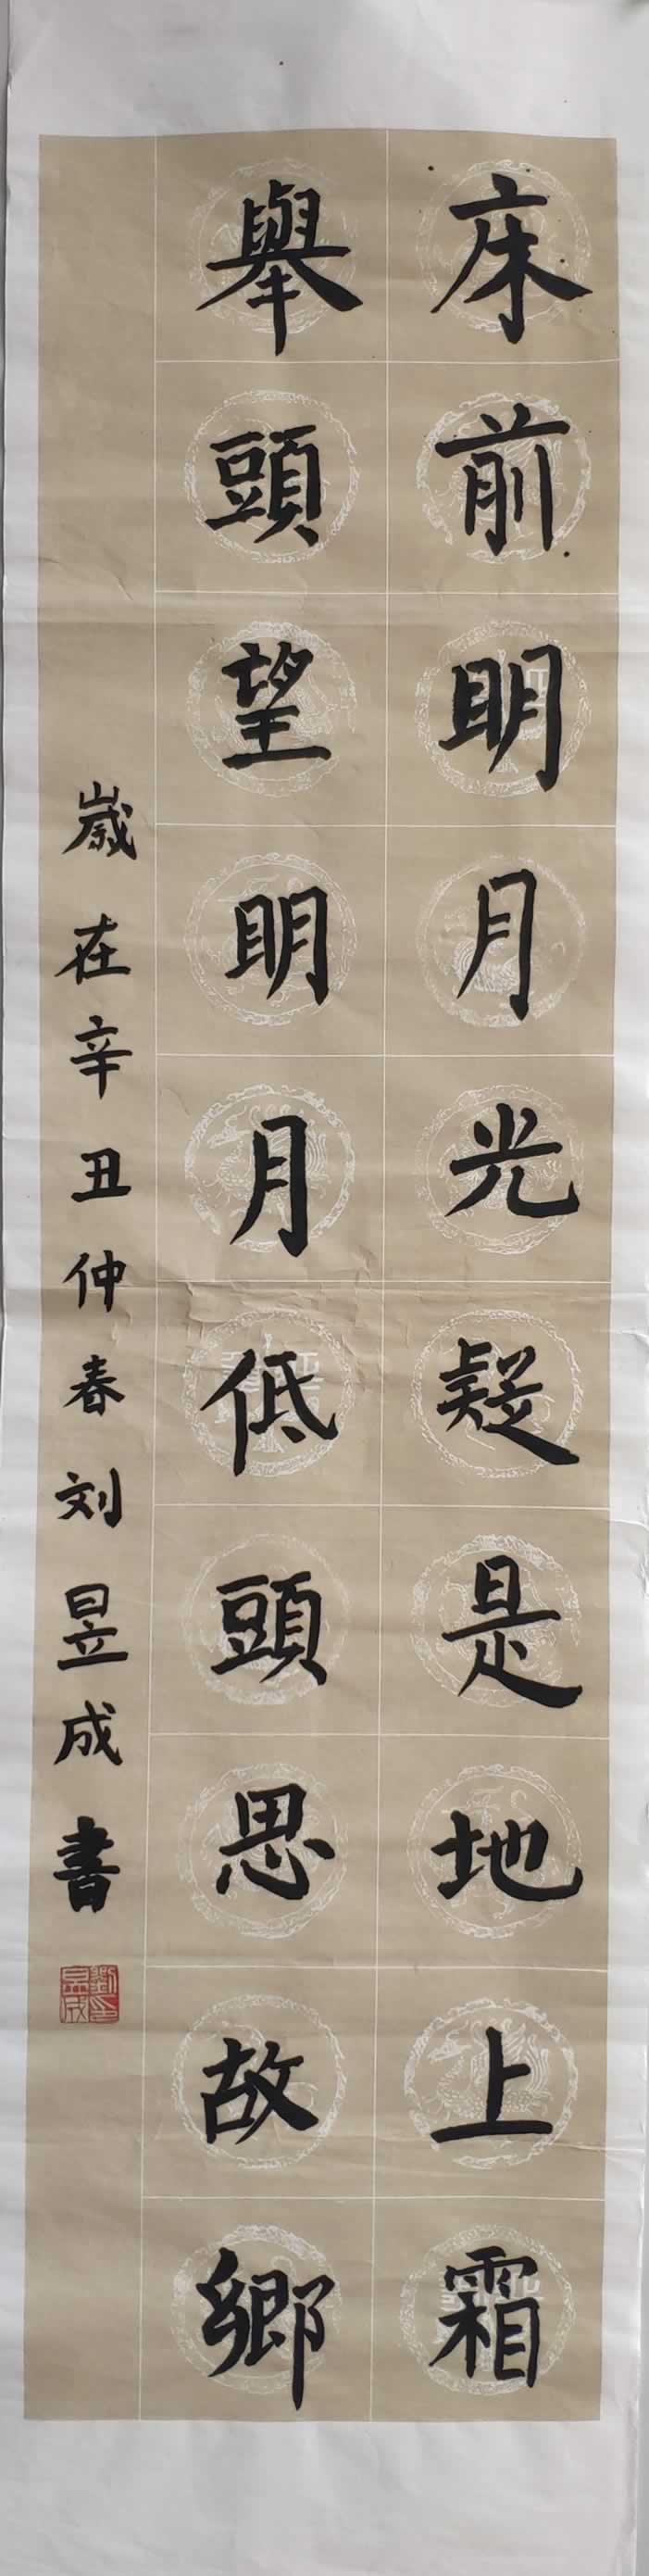 床前明月光疑是地上霜
舉頭望明月低頭思故鄉
歲在辛丑仲春刘昱成書